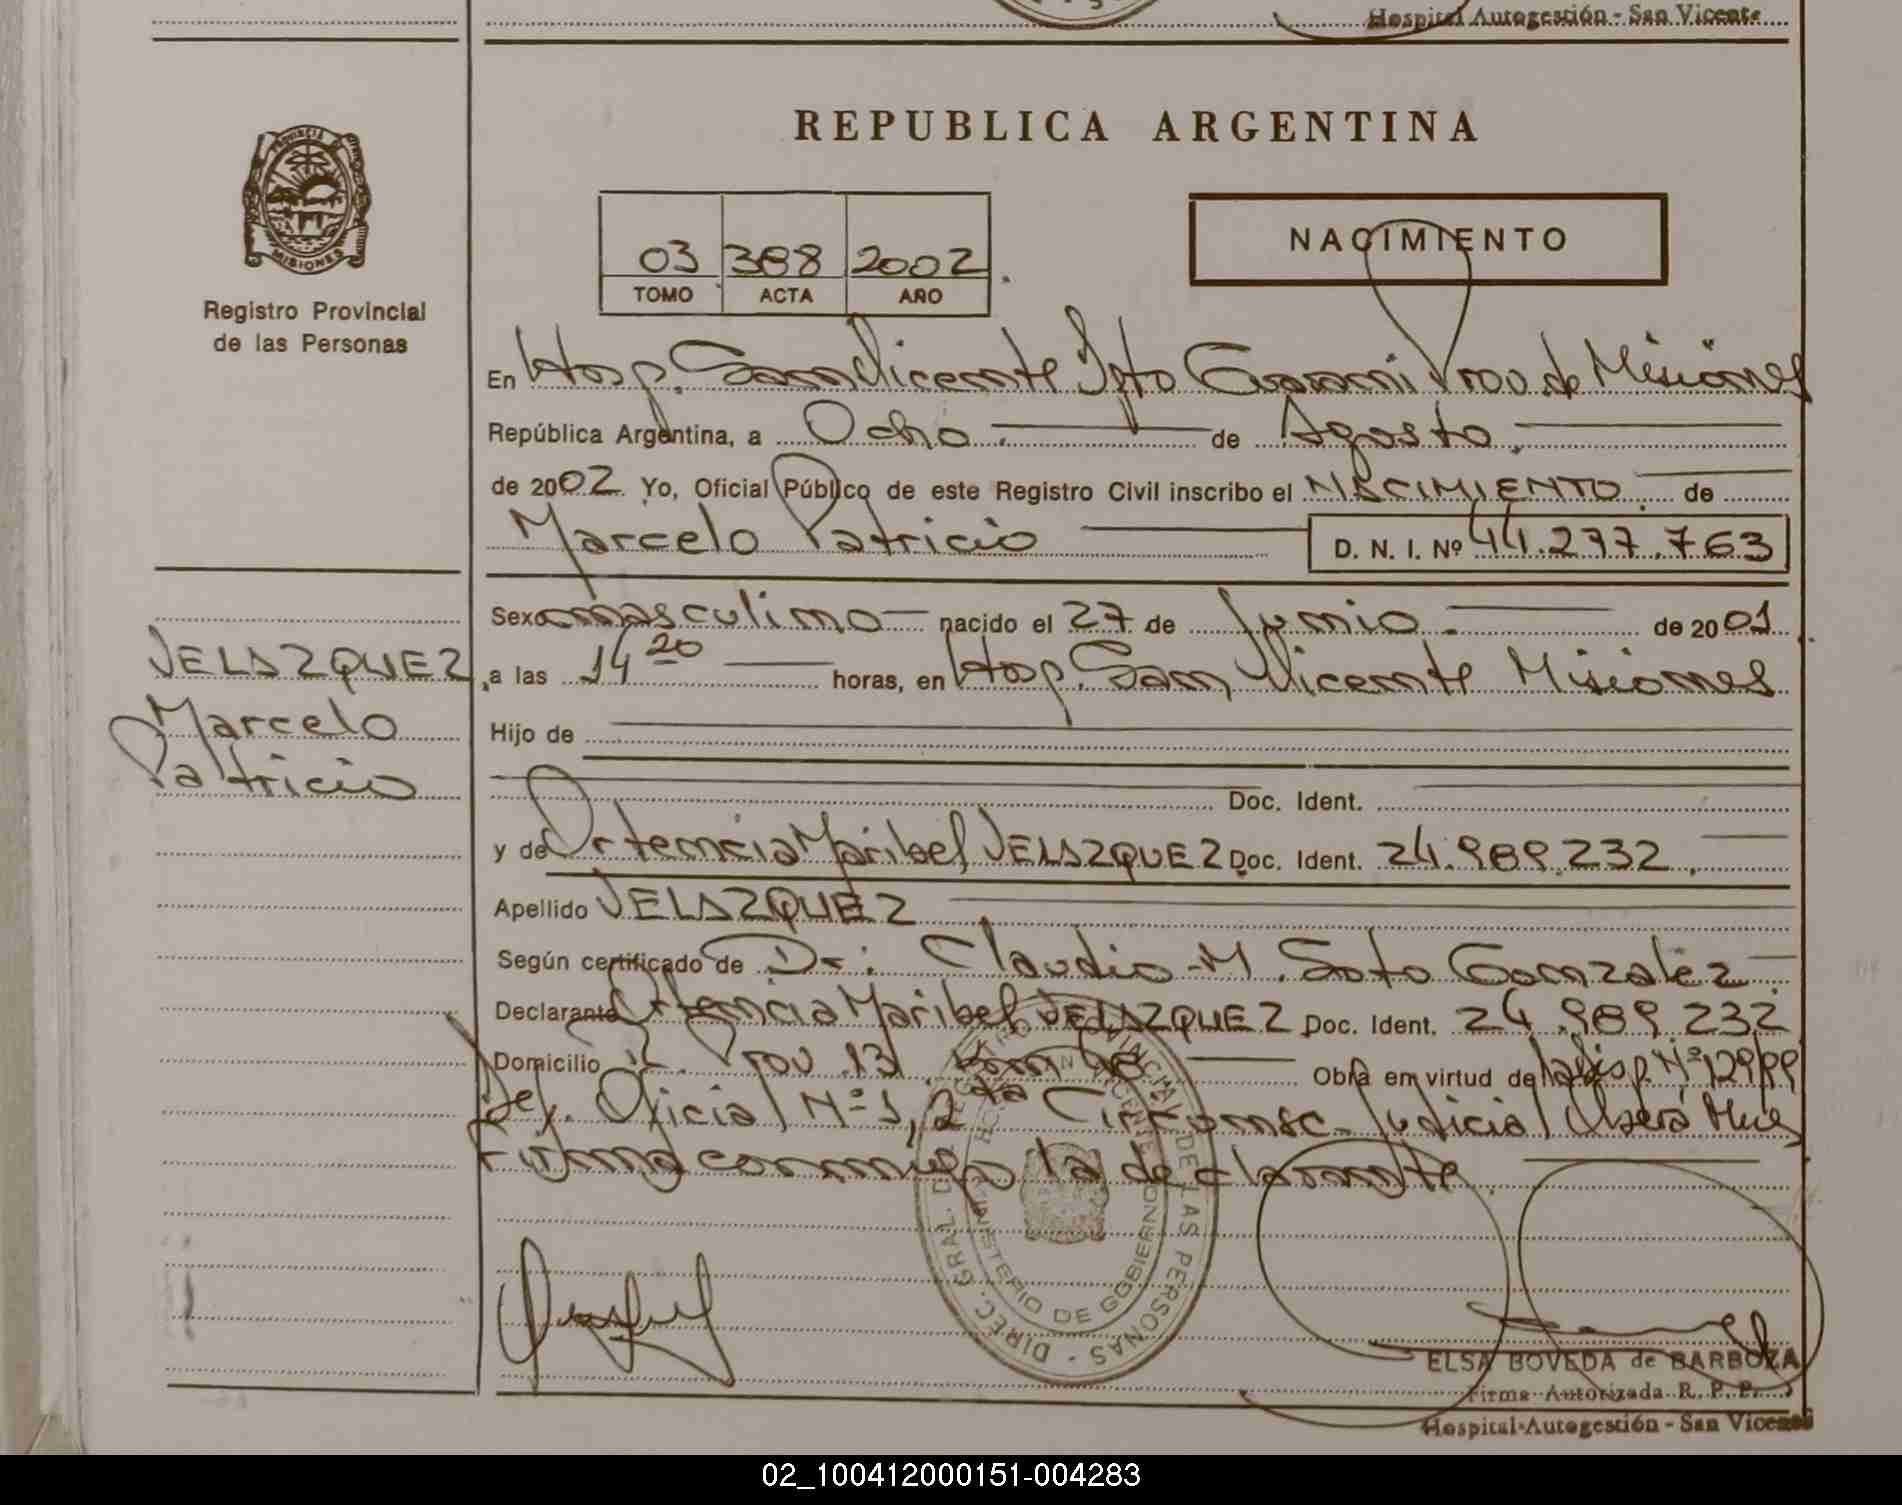 Hospital Autogestión - San Vicente
PROVINCIA DE
MISIONES
Registro Provincial
de las Personas
VELAZQUEZ
Marcelo
Patricio
REPUBLICA ARGENTINA
03 388 2002
TOMO ACTA AÑO
NACIMIENTO
En Hosp. San Vicente Dpto Guarani Prov. de Misiones
República Argentina, a Ocho de Agosto
de 2002 Yo, Oficial Público de este Registro Civil inscribo el NACIMIENTO de
Marcelo Patricio D. N. I. Nº 44.277.763
Sexo masculino nacido el 27 de Junio de 2001
a las 14 20 horas, en Hosp. San Vicente Misiones
Hijo de
Doc. Ident.
y de Ortencia Maribel VELAZQUEZ Doc. Ident. 24.989.232
Apellido VELAZQUEZ
Según certificado de Dr: Claudio M. Soto Gonzalez
Declarante Ortencia Maribel VELAZQUEZ Doc. Ident. 24.989.232
Domicilio Prov. 13 Obra en virtud de la Disp. Nº 129/99
Def. Oficial Nº 1, 2da Circunsc. Judicial Oberá Mnes
Firma conmigo la declarante
DIREC. GRAL. DEL REGISTRO PROVINCIAL DE LAS PERSONAS
MINISTERIO DE GOBIERNO
ELSA BOVEDA de BARBOZA
Firma Autorizada R. P. P.
Hospital-Autogestión - San Vicente
02_100412000151-004283